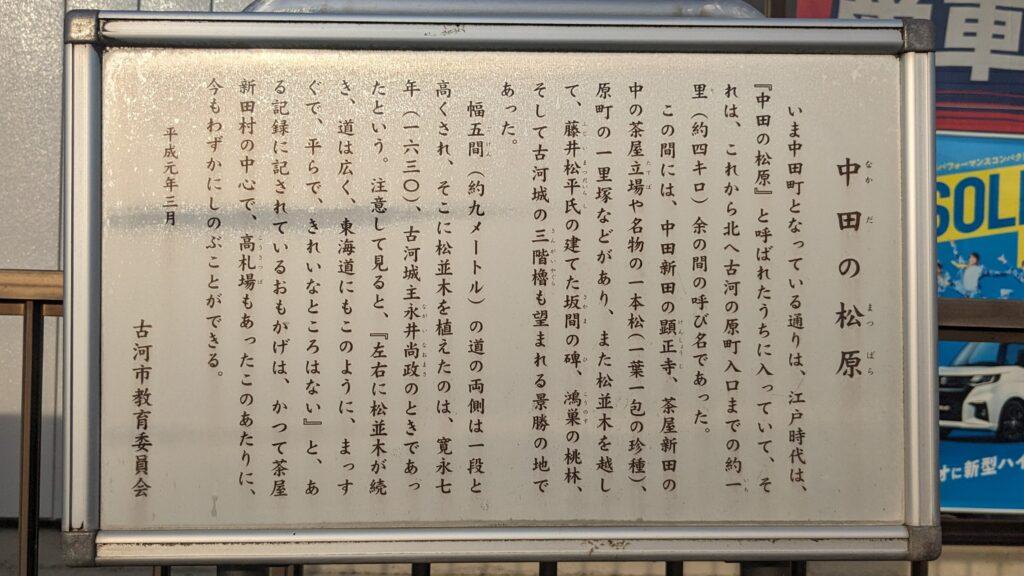 中田の松原
なか だ まつ ばら
いま中田町となっている通りは、江戸時代は、
『中田の松原』と呼ばれたうちに入っていて、そ
れは、これから北へ古河の原町入口までの約一
里（約四キロ）余の間の呼び名であった。
この間には、中田新田の顕正寺、茶屋新田の
中の茶屋立場や名物の一本松（一葉一包の珍種）、
原町の一里塚などがあり、また松並木を越し
て、藤井松平氏の建てた坂間の碑、鴻巣の桃林、
そして古河城の三階櫓も望まれる景勝の地で
あった。
幅五間（約九メートル）の道の両側は一段と
高くされ、そこに松並木を植えたのは、寛永七
年（一六三〇）、古河城主永井尚政のときであっ
たという。注意して見ると、『左右に松並木が続
き、道は広く、東海道にもこのように、まっす
ぐで、平らで、きれいなところはない』と、あ
る記録に記されているおもかげは、かつて茶屋
新田村の中心で、高札場もあったこのあたりに、
今もわずかにしのぶことができる。
平成元年三月
古河市教育委員会
パフォーマンスコンパク
SOLI
オに新型ハイ